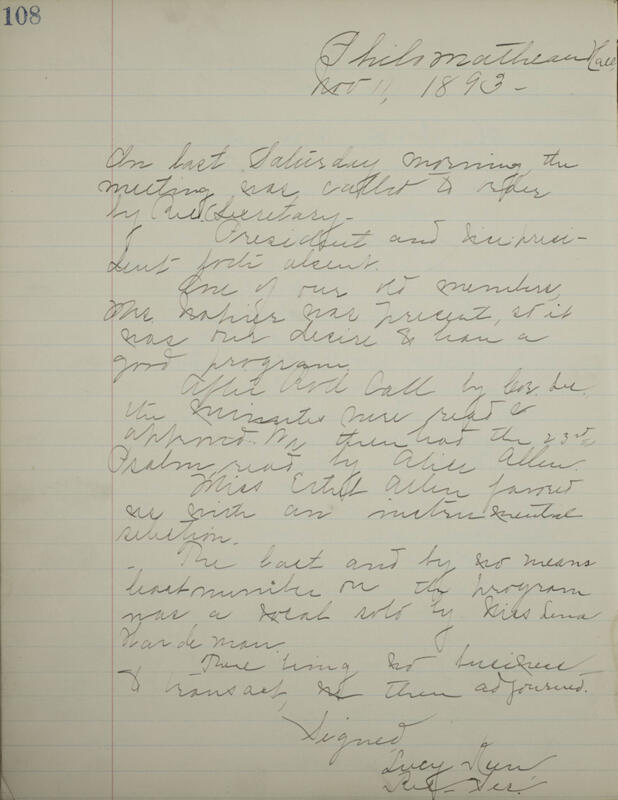 108
Philomathean Hall
Nov 11, 1893-
On last Saturday morning the
meeting was called to order
by the Secretary-
President and vice presi-
dent both absent.
One of our old members,
Mr. Napier was present, so it
was our desire to have a
good program.
After Roll Call by Cor. Sec.
the minutes were read &
approved. We then had the 23rd
Psalm read by Alice Allen.
Miss Estell Allen favored
us with an instrumental
selection.
The last and by no means
least number on the program
was a vocal solo by Miss Lena
Hardeman.
There being no business
to transact, we then adjourned.
Signed,
Lucy
Sec.